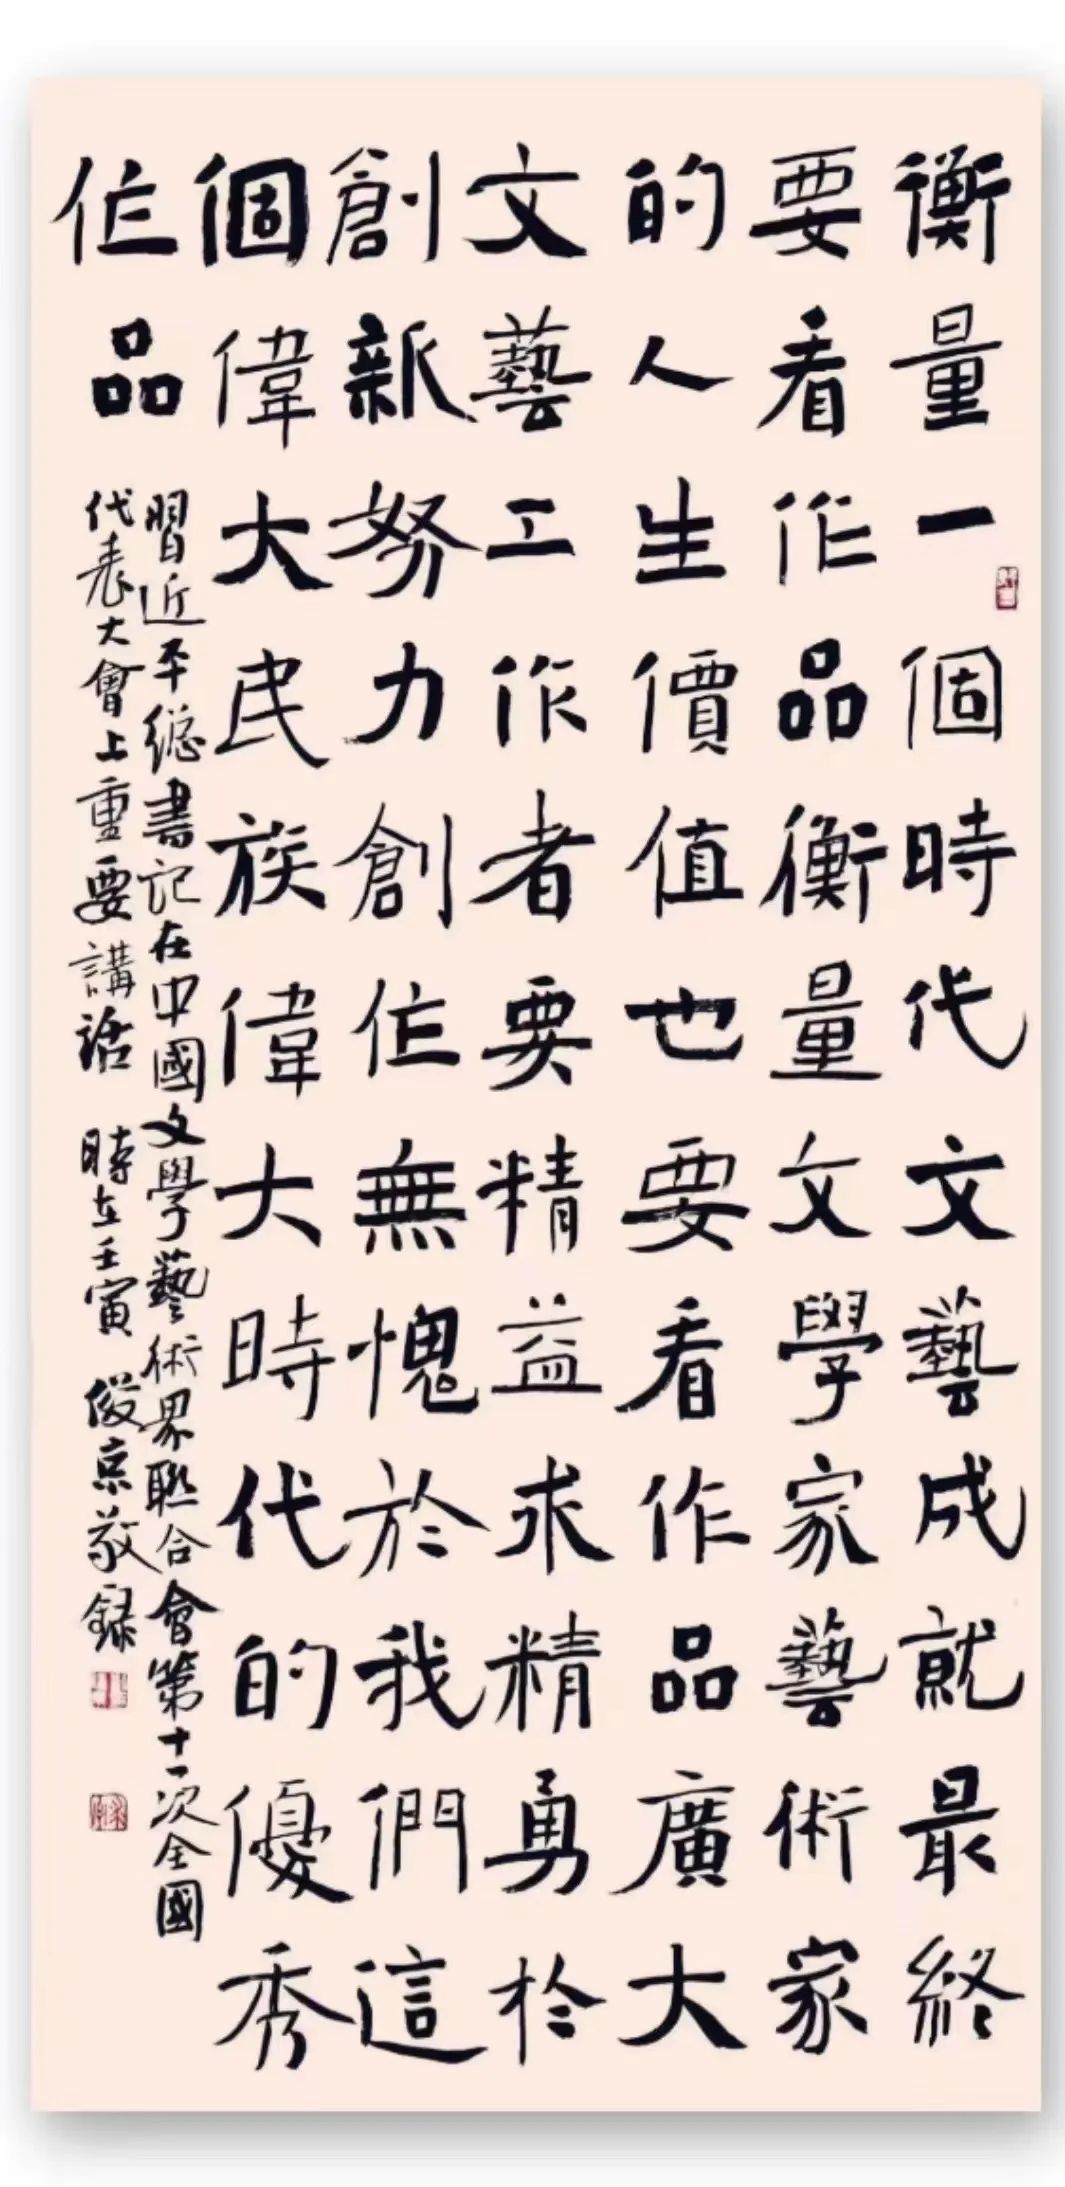 衡量一個時代文藝成就最終
要看作品衡量文學家藝術家
的人生價值也要看作品廣大
文藝工作者要精益求精勇於
創新努力創作無愧於我們這
個偉大民族偉大時代的優秀
作品
習近平總書記在中國文學藝術界聯合會第十一次全國
代表大會上重要講話 時在壬寅 俊京敬録